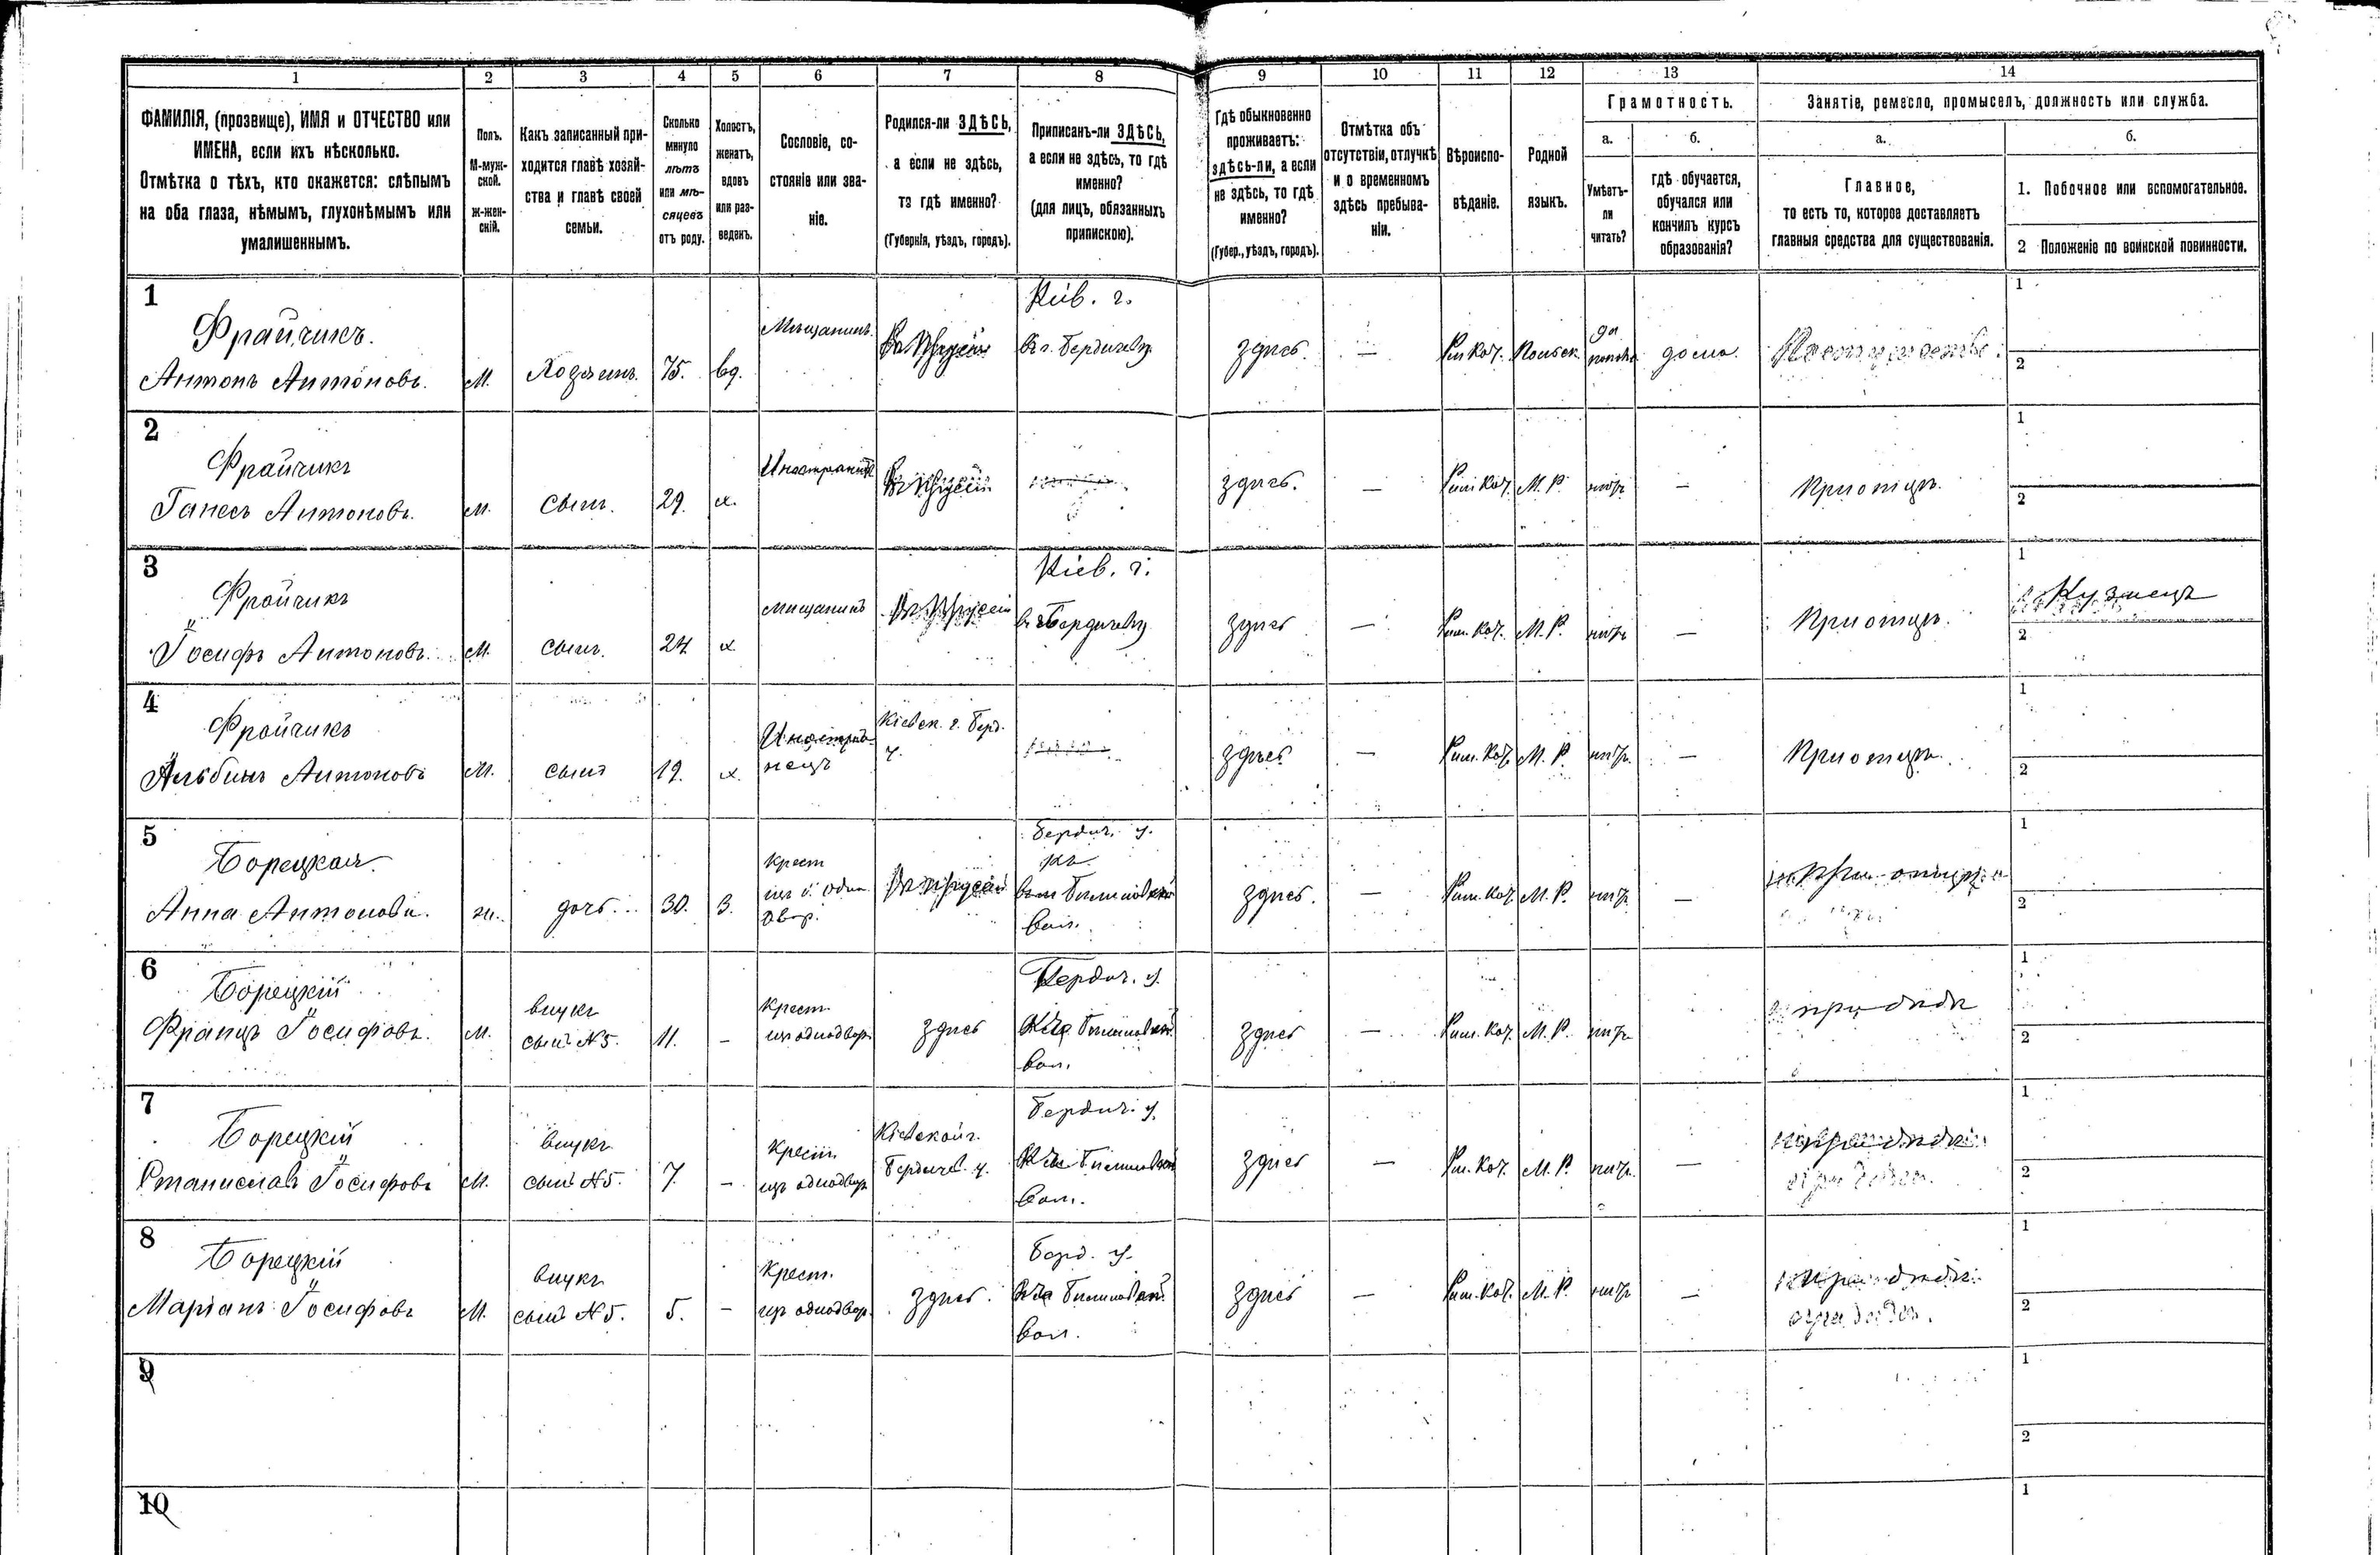 1 2 3 4 5 6 7 8 9 10 11 12 13 14
ФАМИЛІЯ, (прозвище), ИМЯ и ОТЧЕСТВО или
ИМЕНА, если ихъ нѣсколько.
Отмѣтка о тѣхъ, кто окажется: слѣпымъ
на оба глаза, нѣмымъ, глухонѣмымъ или
умалишеннымъ.
Полъ.
М-муж-
ской.
Ж-жен-
скій.
Какъ записанный при-
ходится главѣ хозяй-
ства и главѣ своей
семьи.
Сколько
минуло
лѣтъ
или мѣ-
сяцевъ
отъ роду.
Холостъ,
женатъ,
вдовъ
или раз-
веденъ.
Сословіе, со-
стояніе или зва-
ніе.
Родился-ли ЗДѢСЬ,
а если не здѣсь,
то гдѣ именно?
(Губернія, уѣздъ, городъ).
Приписанъ-ли ЗДѢСЬ,
а если не здѣсь, то гдѣ
именно?
(для лицъ, обязанныхъ
припискою).
Гдѣ обыкновенно
проживаетъ:
здѣсь-ли, а если
не здѣсь, то гдѣ
именно?
(Губер., уѣздъ, городъ).
Отмѣтка объ
отсутствіи, отлучкѣ
и о временномъ
здѣсь пребыва-
ніи.
Вѣроиспо-
вѣданіе.
Родной
языкъ.
Грамотность.
а.
Умѣетъ-
ли
читать?
б.
гдѣ обучается,
обучался или
кончилъ курсъ
образованія?
Занятіе, ремесло, промыселъ, должность или служба.
а.
Главное,
то есть то, которое доставляетъ
главныя средства для существованія.
б.
1. Побочное или вспомогательное.
2 Положеніе по воинской повинности.
1
Фрайчикъ.
Антонъ Антоновъ.
М.
Хозяинъ.
75.
вд.
Мѣщанинъ.
Кіев. г.
въ г. Бердичевѣ
здѣсь.
—
Рим. Кат.
Польск.
да
дома.
1
2
2
Фрайчикъ
Ганесъ Антоновъ.
М.
сынъ.
29.
х.
здѣсь.
—
Рим. Кат.
М. Р.
нѣтъ
—
При отцѣ.
1
2
3
Фрайчикъ
Іосифъ Антоновъ.
М.
сынъ.
24
х
мѣщанинъ
Кіев. г.
въ г. Бердичевѣ
здѣсь
—
Рим. Кат.
М. Р.
нѣтъ
—
При отцѣ.
1
Кузнецъ
2
4
Фрайчикъ
Альбинъ Антоновъ
М.
сынъ
19.
х.
Иностра-
нецъ
Кіевск. г. Берд.
у.
здѣсь
—
Рим. Кат.
М. Р.
нѣтъ.
—
При отцѣ.
1
2
5
Борецкая.
Анна Антонова.
ж.
дочь.
30.
З.
Крест
изъ одно
двор.
Бердич. у.
вол.
здѣсь.
—
Рим. Кат.
М. Р.
нѣтъ.
—
при отцѣ
1
2
6
Борецкій
Францъ Іосифовъ.
М.
внукъ
сынъ №5.
11.
—
Крест.
изъ однодвор.
здѣсь
Бердич. у.
вол.
здѣсь
—
Рим. Кат.
М. Р.
нѣтъ
при дѣдѣ
1
2
7
Борецкій
Станиславъ Іосифовъ
М.
внукъ
сынъ №5.
7.
—
Крест.
изъ однодвор
Кіевской г.
Бердичев. у.
Бердич. у.
вол.
здѣсь
—
Рим. Кат.
М. Р.
нѣтъ.
—
1
2
8
Борецкій
Маріанъ Іосифовъ
М.
внукъ
сынъ №5.
5.
—
Крест.
изъ однодвор.
здѣсь.
Берд. у.
вол.
здѣсь
—
Рим. Кат.
М. Р.
нѣтъ
—
1
2
9
1
2
10
1